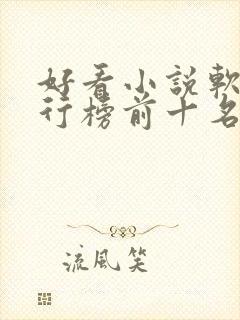 好看小説軟
行榜前十名
流風笑